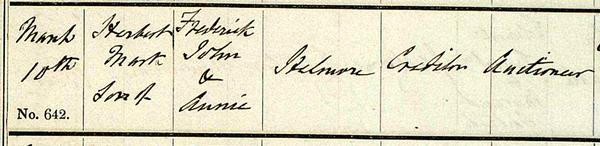 March
10th
No. 642.
Herbert
Mark
Son of
Frederick
John
&
Annie
Helmore
Crediton
Auctioneer